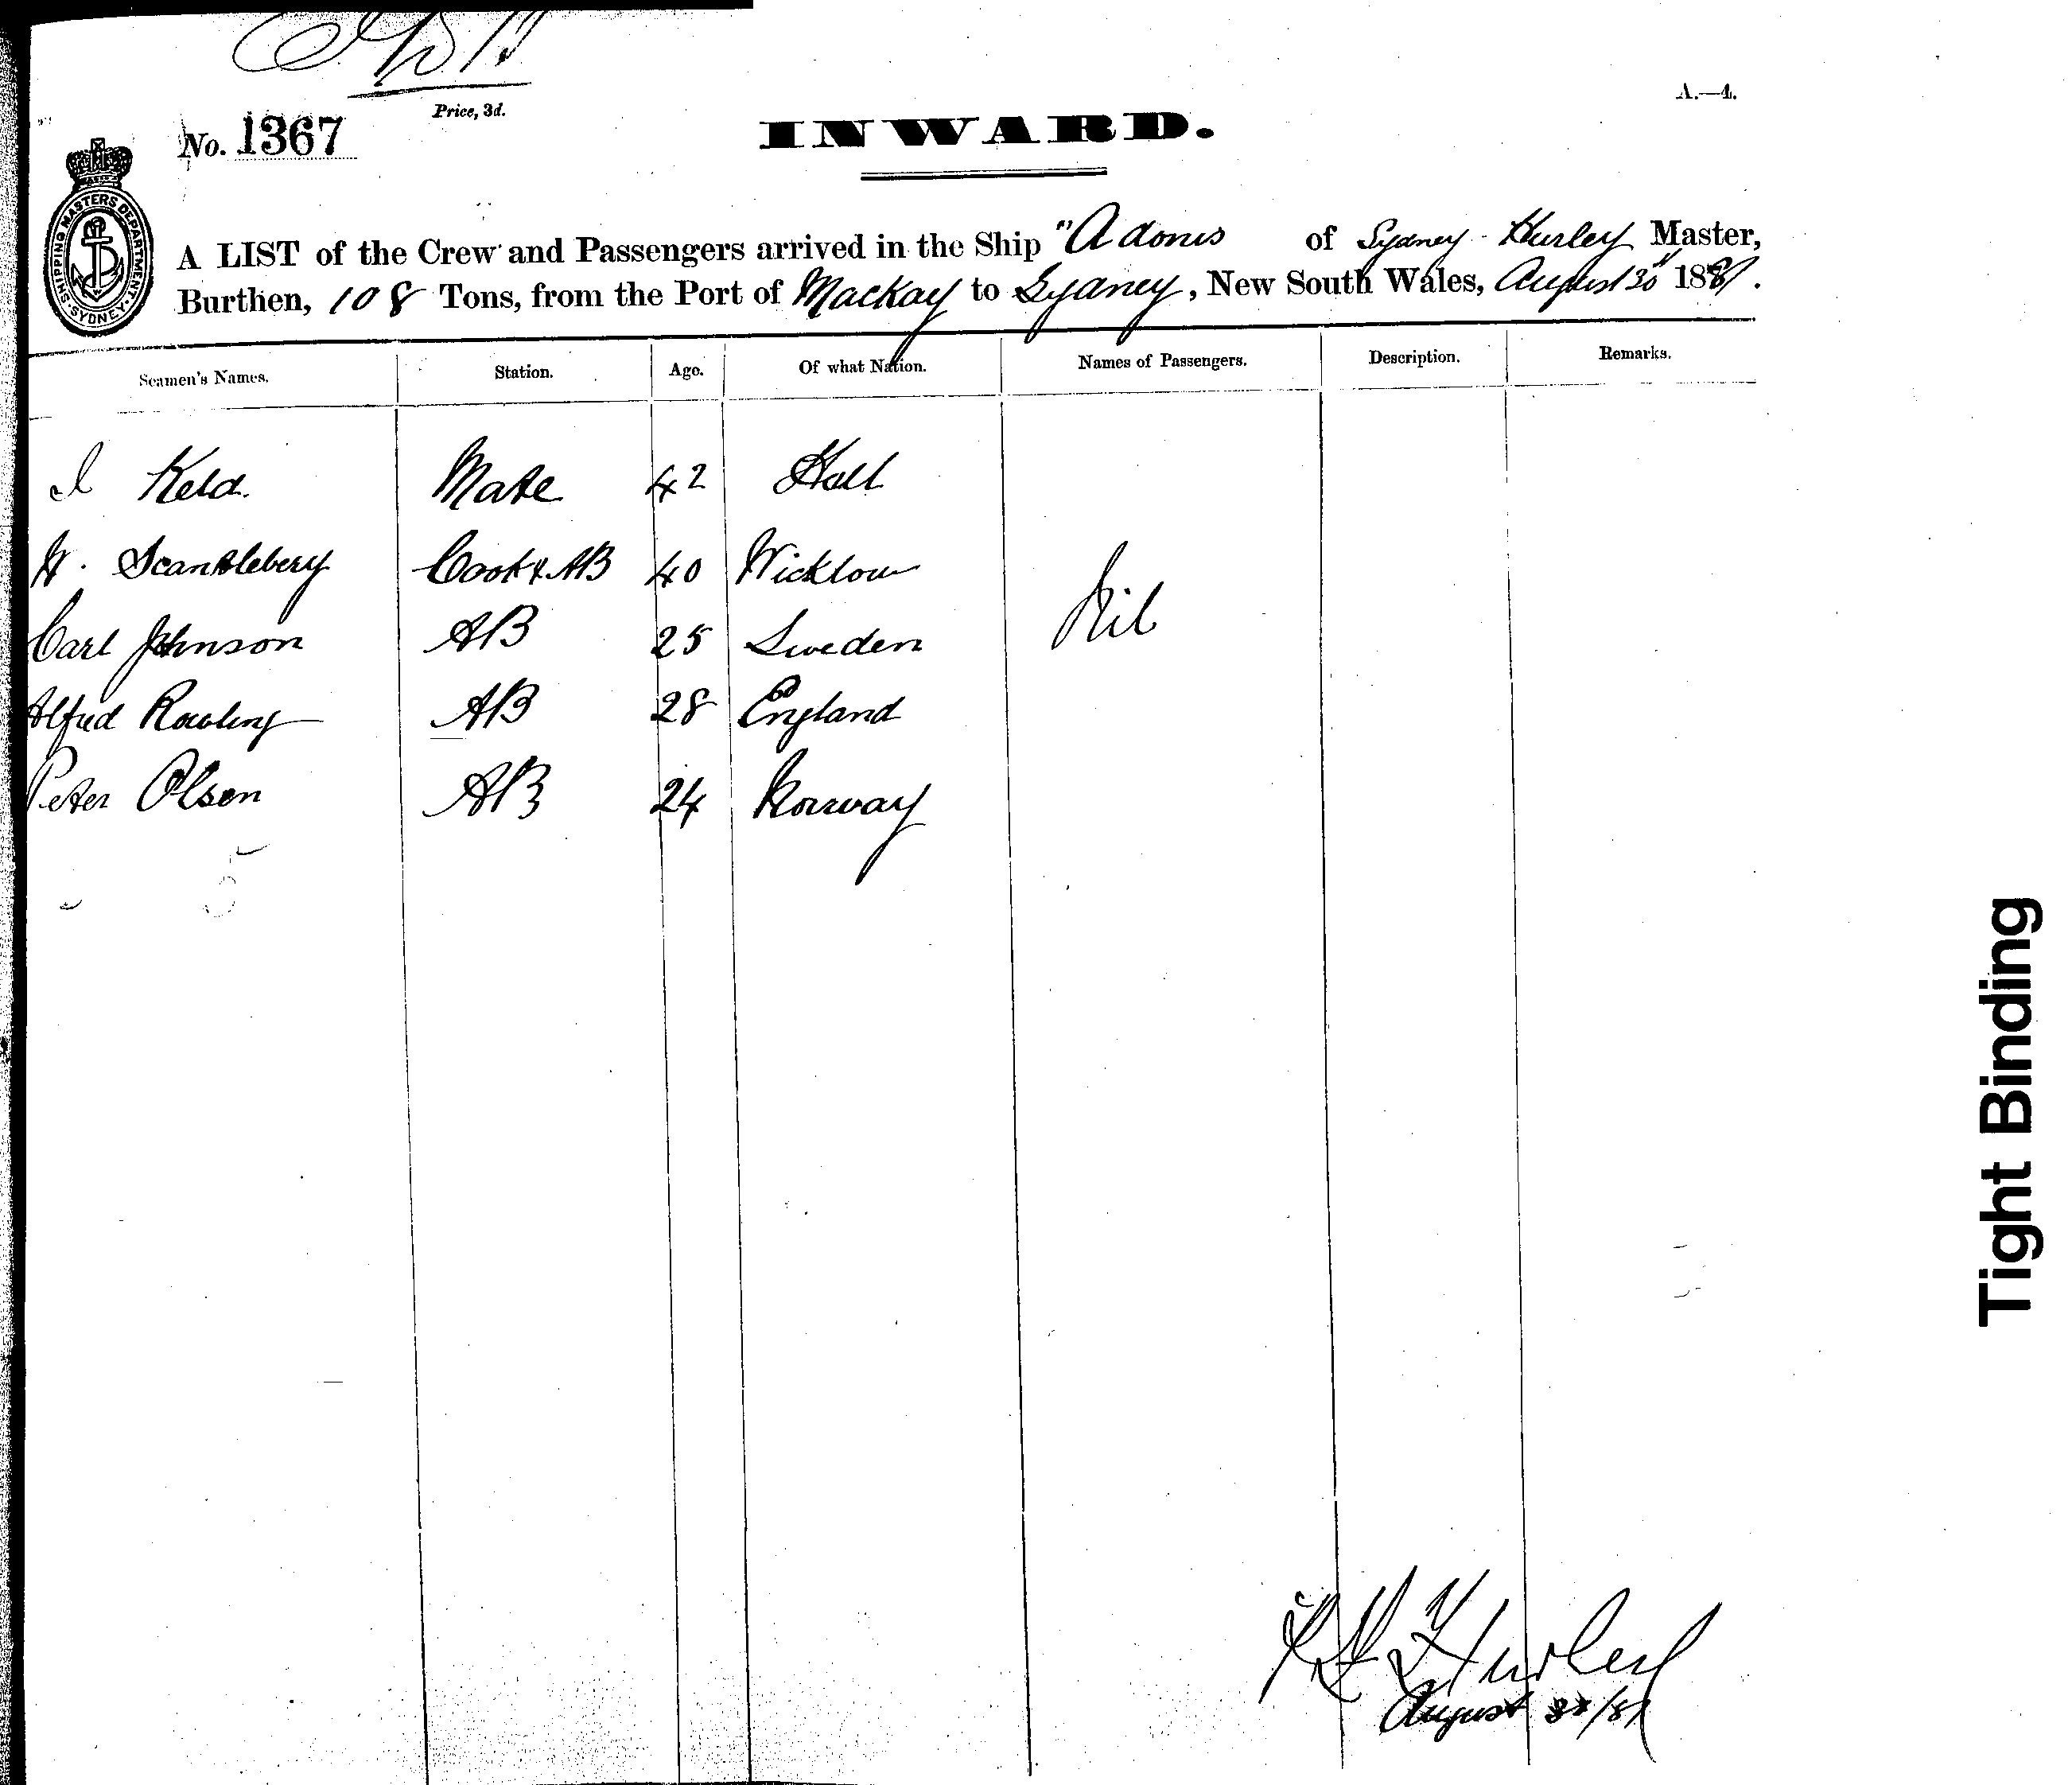 Price, 3d.
A.—4.
No. 1367
INWARD.
SHIPPING MASTERS DEPARTMENT
SYDNEY
A LIST of the Crew and Passengers arrived in the Ship "Adonis of Sydney - Hurley Master,
Burthen, 108 Tons, from the Port of Mackay to Sydney, New South Wales, August 30" 1881.
Seamen's Names. Station. Age. Of what Nation. Names of Passengers. Description. Remarks.
I Keld. Mate 42 Hull
Scantlebery Cook & AB 40 Wicklow
Nil
Carl Johnson AB 25 Sweden
Alfred Rowling AB 28 England
Peter Olsen AB 24 Norway
Hurley
August /81
Tight Binding